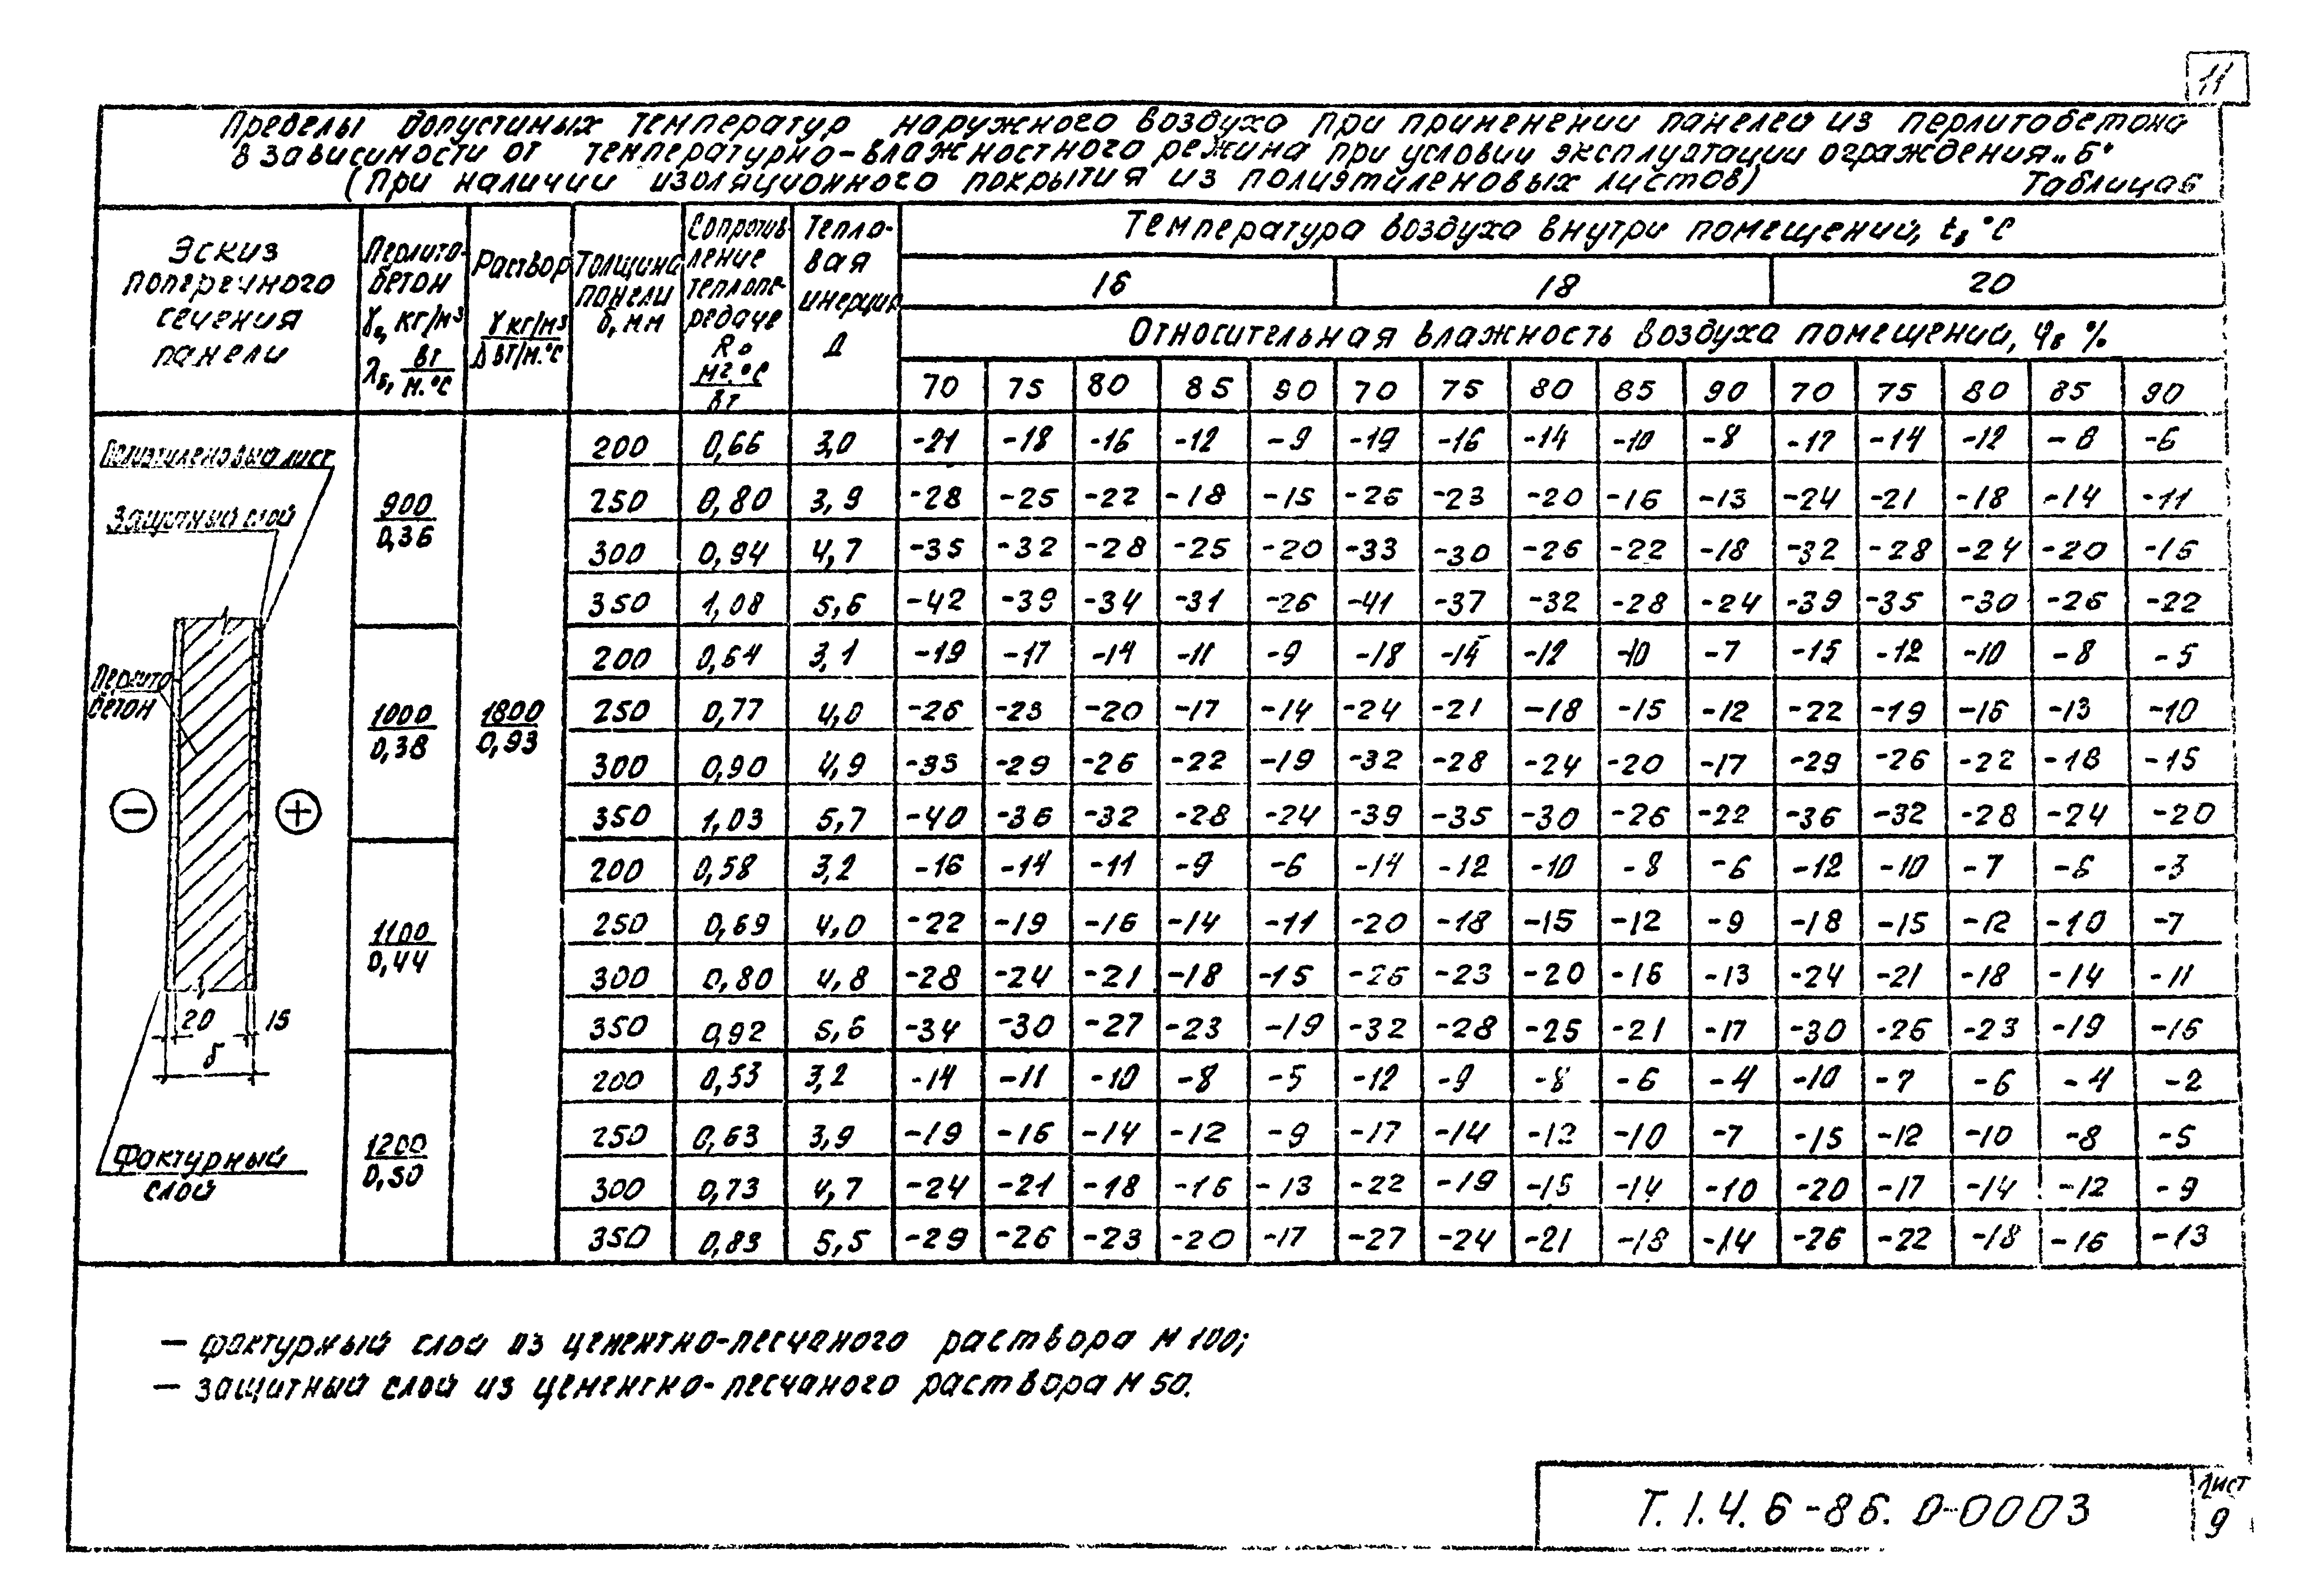 11
Пределы допустимых температур наружного воздуха при применении панелей из перлитобетона
в зависимости от температурно-влажностного режима при условии эксплуатации ограждения „Б"
(при наличии изоляционного покрытия из полиэтиленовых листов) Таблица 6
Эскиз поперечного сечения панели
Перлито-бетон γ, кг/м³ λδ, Вт/м.°С
Раствор γ кг/м³ / λ Вт/м.°С
Толщина панели δ, мм
Сопротивление теплопередаче Ro м².°С/Вт
Тепловая инерция Д
Температура воздуха внутри помещений, tв °С
16 18 20
Относительная влажность воздуха помещений, φв %
70 75 80 85 90 70 75 80 85 90 70 75 80 85 90
Полиэтиленовый лист
Защитный слой
Перлито
бетон
− +
20 15
δ
Фактурный
слой
1800
0,93
900
0,36
200 0,66 3,0 -21 -18 -16 -12 -9 -19 -16 -14 -10 -8 -17 -14 -12 -8 -6
250 0,80 3,9 -28 -25 -22 -18 -15 -26 -23 -20 -16 -13 -24 -21 -18 -14 -11
300 0,94 4,7 -35 -32 -28 -25 -20 -33 -30 -26 -22 -18 -32 -28 -24 -20 -16
350 1,08 5,6 -42 -39 -34 -31 -26 -41 -37 -32 -28 -24 -39 -35 -30 -26 -22
1000
0,38
200 0,64 3,1 -19 -17 -14 -11 -9 -18 -14 -12 -10 -7 -15 -12 -10 -8 -5
250 0,77 4,0 -26 -23 -20 -17 -14 -24 -21 -18 -15 -12 -22 -19 -16 -13 -10
300 0,90 4,9 -33 -29 -26 -22 -19 -32 -28 -24 -20 -17 -29 -26 -22 -18 -15
350 1,03 5,7 -40 -36 -32 -28 -24 -39 -35 -30 -26 -22 -36 -32 -28 -24 -20
1100
0,44
200 0,58 3,2 -16 -14 -11 -9 -6 -14 -12 -10 -8 -6 -12 -10 -7 -6 -3
250 0,69 4,0 -22 -19 -16 -14 -11 -20 -18 -15 -12 -9 -18 -15 -12 -10 -7
300 0,80 4,8 -28 -24 -21 -18 -15 -26 -23 -20 -16 -13 -24 -21 -18 -14 -11
350 0,92 5,6 -34 -30 -27 -23 -19 -32 -28 -25 -21 -17 -30 -26 -23 -19 -16
1200
0,50
200 0,53 3,2 -14 -11 -10 -8 -5 -12 -9 -8 -6 -4 -10 -7 -6 -4 -2
250 0,63 3,9 -19 -16 -14 -12 -9 -17 -14 -12 -10 -7 -15 -12 -10 -8 -5
300 0,73 4,7 -24 -21 -18 -16 -13 -22 -19 -16 -14 -10 -20 -17 -14 -12 -9
350 0,83 5,5 -29 -26 -23 -20 -17 -27 -24 -21 -18 -14 -26 -22 -18 -16 -13
— фактурный слой из цементно-песчаного раствора М 100;
— защитный слой из цементно-песчаного раствора М 50.
Т.1.4.6-86.0-0003
Лист
9